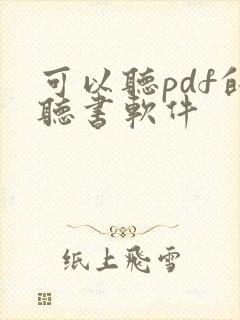 可以聽pdf的
聽書軟件
纸上飛雪